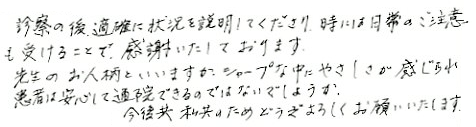 診察の後、適確に状況を説明してくださり、時には日常のご注意
も受けることで、感謝いたしております。
先生のお人柄といいますか、シャープな中にやさしさが感じられ
患者は安心して通院できるのではないでしょうか。
今後共私共のためどうぞよろしくお願いいたします。